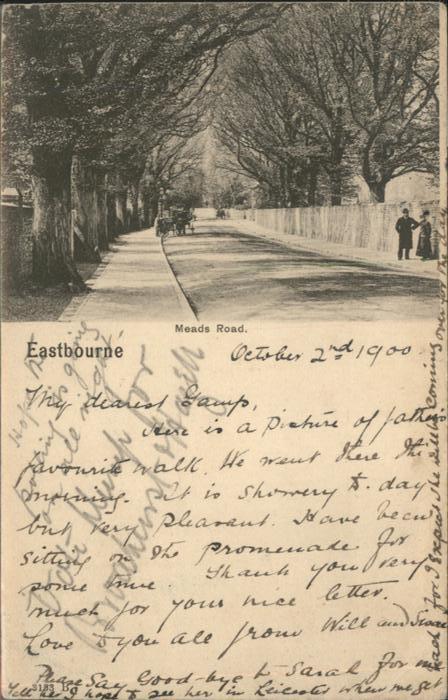 Meads Road.
Eastbourne
October 2nd 1900
My dearest Gamp,
Here is a Picture of father's
favourite walk. We went there this
morning. It is showery to-day
but very pleasant. Have been
sitting on the promenade for
some time. Thank you very
much for your nice letter.
Love to you all from Will and
Please Say Good-bye to Sarah for me
Tell her I hope to see her in Leicester when we get
back for I expect she will be coming over
3133 B
Hope
is going
on all right